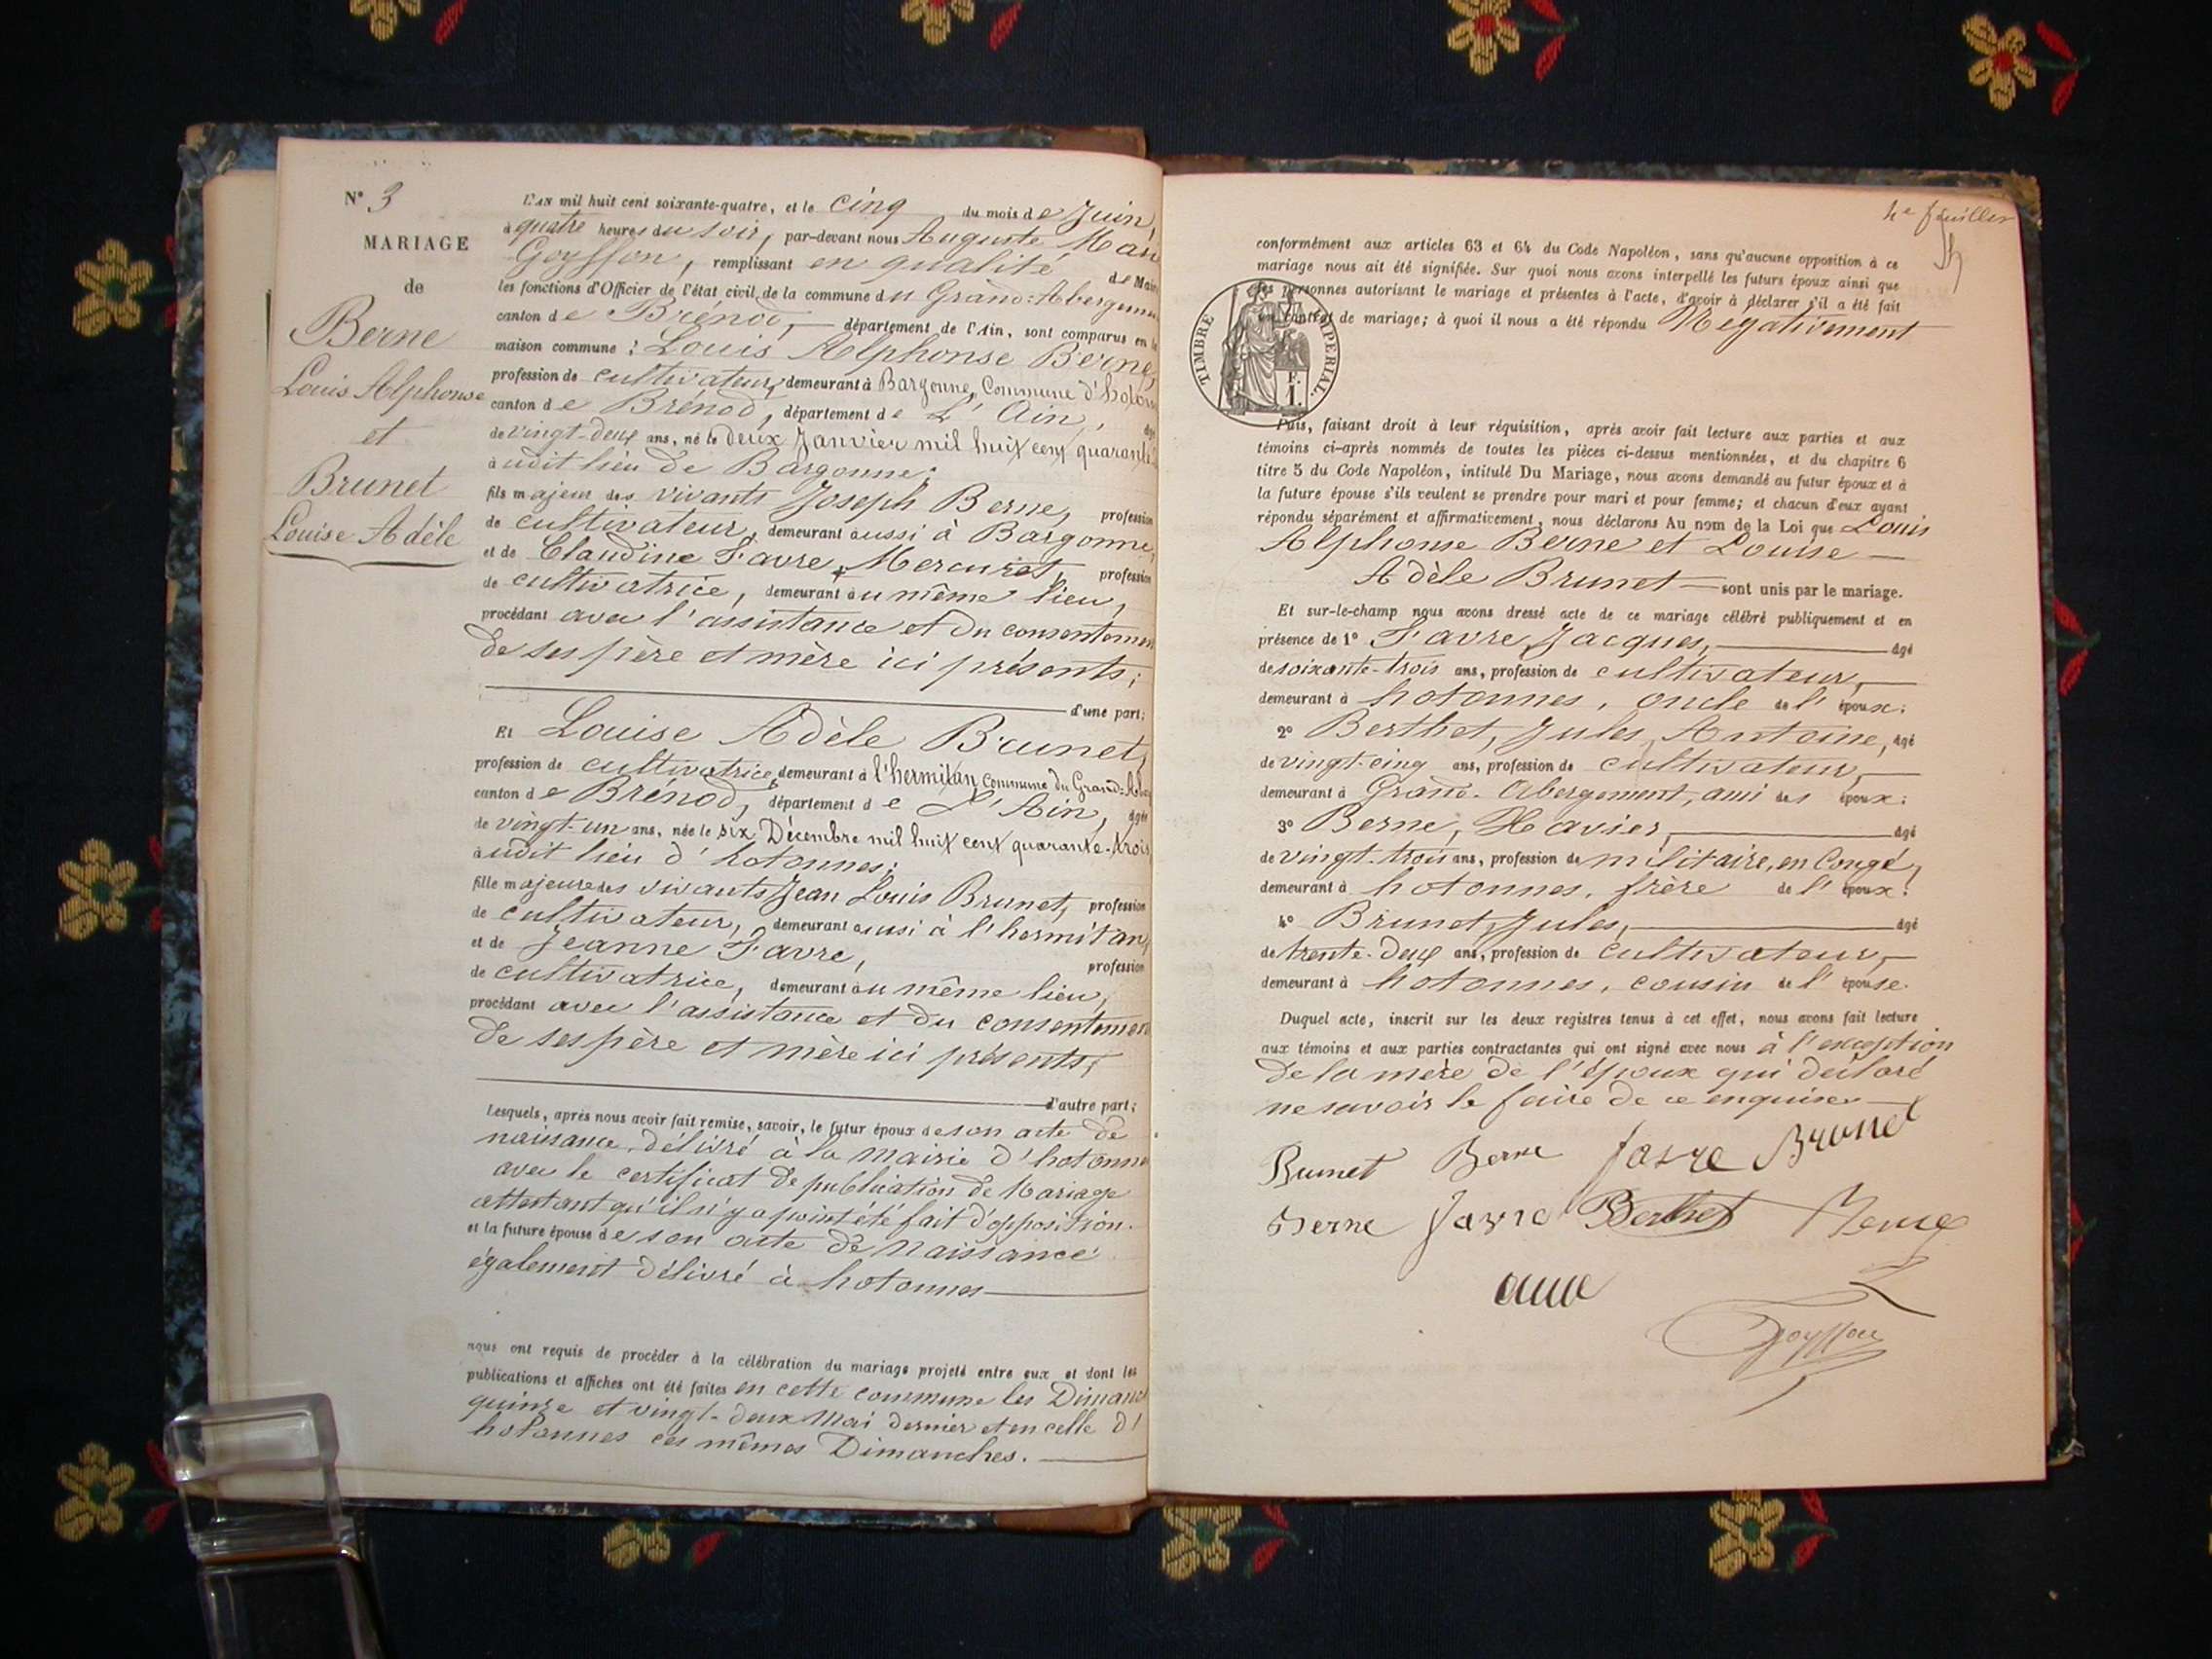 N° 3
MARIAGE
de
Berne
Louis Alphonse
et
Brunet
Louise Adèle
L'AN mil huit cent soixante-quatre, et le cinq du mois de Juin,
à quatre heures du soir, par-devant nous Auguste
Goyffon, remplissant en qualité de Maire
les fonctions d'Officier de l'état civil de la commune du Grand-Abergem
canton de Brénod, département de l'Ain, sont comparus en la
maison commune : Louis Alphonse Berne,
profession de cultivateur, demeurant à Bargonne, Commune d'hoton
canton de Brénod, département de L'Ain, âgé
de vingt-deux ans, né le deux Janvier mil huit cent quarante
audit lieu de Bargonne;
fils majeur des vivants Joseph Berne, profession
de cultivateur, demeurant aussi à Bargonne,
et de Claudine Favre Mercuret, profession
de cultivatrice, demeurant au même lieu,
procédant avec l'assistance et du consentemen
de ses père et mère ici présents;
d'une part;
Et Louise Adèle Brunet,
profession de cultivatrice, demeurant à l'hermitan, Commune du Grand-Aber
canton de Brénod, département de L'Ain, âgée
de vingt-un ans, née le six Décembre mil huit cent quarante-trois
audit lieu d'hotonnes;
fille majeure des vivants Jean Louis Brunet, profession
de cultivateur, demeurant aussi à l'hermitan,
et de Jeanne Favre, profession
de cultivatrice, demeurant au même lieu,
procédant avec l'assistance et du consentemen
de ses père et mère ici présents;
d'autre part;
Lesquels, après nous avoir fait remise, savoir, le futur époux de son acte de
naissance, délivré à la mairie d'hotonne
avec le certificat de publication de Mariage
attestant qu'il n'y a point été fait d'opposition.
et la future épouse de son acte de naissance
également délivré à hotonnes
nous ont requis de procéder à la célébration du mariage projeté entre eux et dont les
publications et affiches ont été faites en cette commune les Dimanc
quinze et vingt-deux Mai dernier et en celle d'
hotonnes ces mêmes Dimanches.
4e feuillet
conformément aux articles 63 et 64 du Code Napoléon, sans qu'aucune opposition à ce
mariage nous ait été signifiée. Sur quoi nous avons interpellé les futurs époux ainsi que
les personnes autorisant le mariage et présentes à l'acte, d'avoir à déclarer s'il a été fait
un contrat de mariage; à quoi il nous a été répondu Négativement
TIMBRE IMPERIAL
F.
1.
Puis, faisant droit à leur réquisition, après avoir fait lecture aux parties et aux
témoins ci-après nommés de toutes les pièces ci-dessus mentionnées, et du chapitre 6
titre 5 du Code Napoléon, intitulé Du Mariage, nous avons demandé au futur époux et à
la future épouse s'ils veulent se prendre pour mari et pour femme; et chacun d'eux ayant
répondu séparément et affirmativement, nous déclarons Au nom de la Loi que Louis
Alphonse Berne et Louise
Adèle Brunet sont unis par le mariage.
Et sur-le-champ nous avons dressé acte de ce mariage célébré publiquement et en
présence de 1° Favre, Jacques, âgé
de soixante-trois ans, profession de cultivateur,
demeurant à hotonnes, oncle de l'époux;
2° Berthet, Jules, Antoine, âgé
de vingt-cinq ans, profession de cultivateur,
demeurant à Grand-Abergement, ami des époux;
3° Berne, Xavier, âgé
de vingt-trois ans, profession de militaire, en Congé,
demeurant à hotonnes, frère de l'époux;
4° Brunet, Jules, âgé
de trente-deux ans, profession de cultivateur,
demeurant à hotonnes, cousin de l'épouse.
Duquel acte, inscrit sur les deux registres tenus à cet effet, nous avons fait lecture
aux témoins et aux parties contractantes qui ont signé avec nous à l'exception
de la mère de l'époux qui déclaré
ne savoir le faire de ce enquise
Brunet Berne favre Brunet
Berne favre Berthet Berne
Goyffon